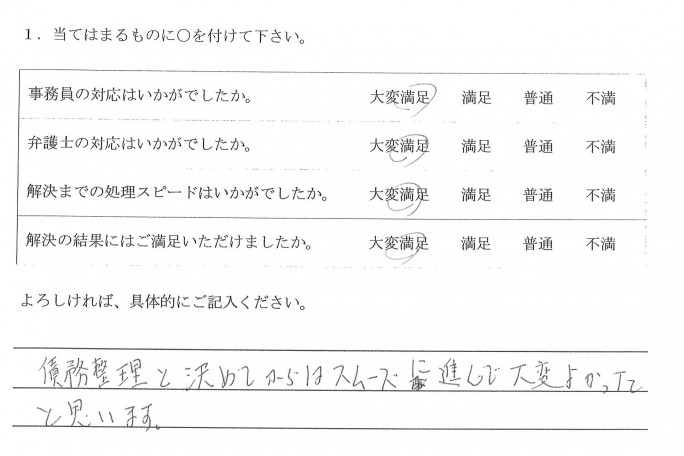 １．当てはまるものに〇を付けて下さい。
事務員の対応はいかがでしたか。 大変満足 満足 普通 不満
弁護士の対応はいかがでしたか。 大変満足 満足 普通 不満
解決までの処理スピードはいかがでしたか。 大変満足 満足 普通 不満
解決の結果にはご満足いただけましたか。 大変満足 満足 普通 不満
よろしければ、具体的にご記入ください。
債務整理と決めてからはスムーズに進んで大変よかって
と思います。